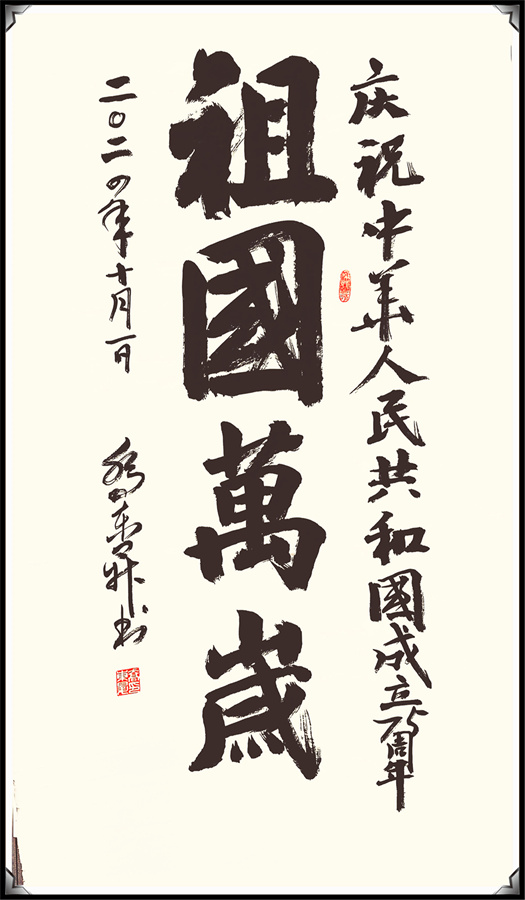 庆祝中華人民共和國成立75周年
祖國萬歲
二〇二四年十月一日